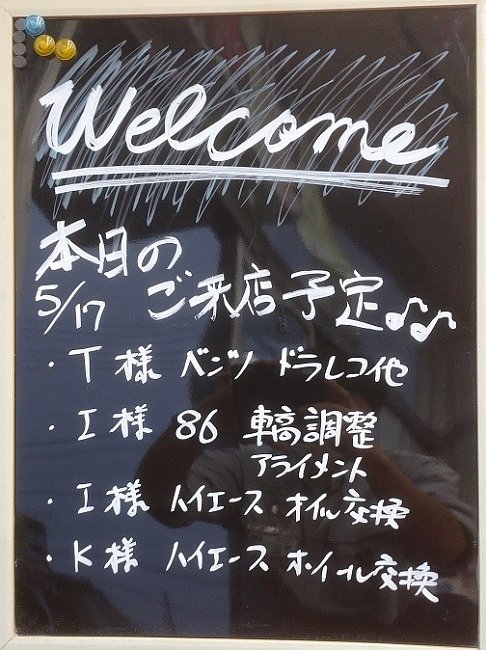 Welcome
本日の
5/17 ご来店予定♪♫
・T様 ベンツ ドラレコ他
・I様 86 車高調整
アライメント
・I様 ハイエース オイル交換
・K様 ハイエース ホイール交換